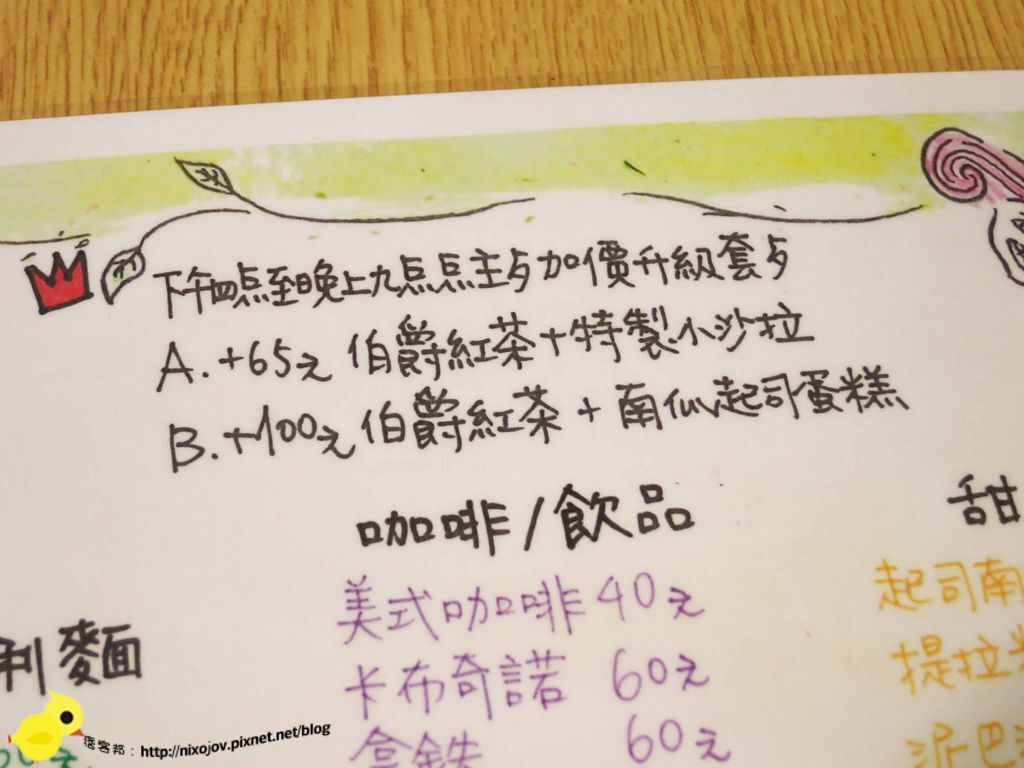 下午四点至晚上九点点主歺加價升級套歺
A. +65元 伯爵紅茶+特製小沙拉
B. +100元 伯爵紅茶 + 南瓜起司蛋糕
咖啡/飲品
甜
美式咖啡 40元
起司南
利麵
卡布奇諾 60元
提拉米
拿鐵 60元
泥巴
痞客邦：http://nixojov.pixnet.net/blog